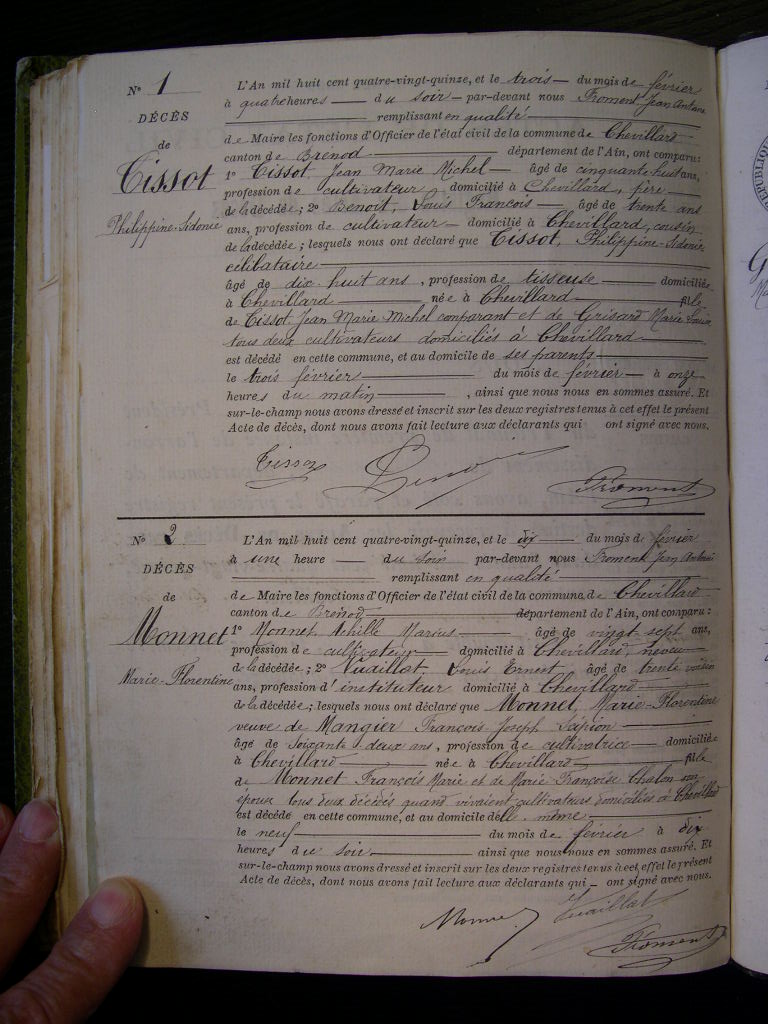 N° 1
DÉCÈS
de
Tissot
Philippine-Sidonie
L'An mil huit cent quatre-vingt-quinze, et le trois du mois de février
à quatre heures du soir par-devant nous Froment Jean Antoine
remplissant en qualité
de Maire les fonctions d'Officier de l'état civil de la commune de Chevillard
canton de Brénod département de l'Ain, ont comparu:
1° Tissot Jean Marie Michel âgé de cinquante huit ans,
profession de cultivateur domicilié à Chevillard, père
de la décédée; 2° Benoit, Louis François âgé de trente ans
ans, profession de cultivateur domicilié à Chevillard, cousin
de la décédée; lesquels nous ont déclaré que Tissot, Philippine-Sidonie
célibataire
âgé de dix-huit ans, profession de tisseuse domiciliée
à Chevillard née à Chevillard fille
de Tissot Jean Marie Michel comparant et de Grisard Marie Louise
tous deux cultivateurs domiciliés à Chevillard
est décédé en cette commune, et au domicile de ses parents
le trois février du mois de février à onze
heures du matin, ainsi que nous nous en sommes assuré. Et
sur-le-champ nous avons dressé et inscrit sur les deux registres tenus à cet effet le présent
Acte de décès, dont nous avons fait lecture aux déclarants qui ont signé avec nous.
Tissot Benoit Froment
N° 2
DÉCÈS
de
Monnet
Marie-Florentine
L'An mil huit cent quatre-vingt-quinze, et le dix du mois de février
à une heure du soir par-devant nous Froment Jean Antoine
remplissant en qualité
de Maire les fonctions d'Officier de l'état civil de la commune de Chevillard
canton de Brénod département de l'Ain, ont comparu:
1° Monnet Achille Marius âgé de vingt-sept ans,
profession de cultivateur domicilié à Chevillard, neveu
de la décédée; 2° Vuaillat, Louis Ernest âgé de trente
ans, profession d'instituteur domicilié à Chevillard
de la décédée; lesquels nous ont déclaré que Monnet, Marie-Florentine
veuve de Mangier François-Joseph
âgé de soixante-deux ans, profession de cultivatrice domiciliée
à Chevillard née à Chevillard fille
de Monnet François Marie et de Marie Françoise Chalon son
époux tous deux décédés quand vivaient cultivateurs domiciliés à Chevillard
est décédé en cette commune, et au domicile delle-même
le neuf du mois de février à dix
heures du soir ainsi que nous nous en sommes assuré. Et
sur-le-champ nous avons dressé et inscrit sur les deux registres tenus à cet effet le présent
Acte de décès, dont nous avons fait lecture aux déclarants qui ont signé avec nous.
Monnet Vuaillat
Froment